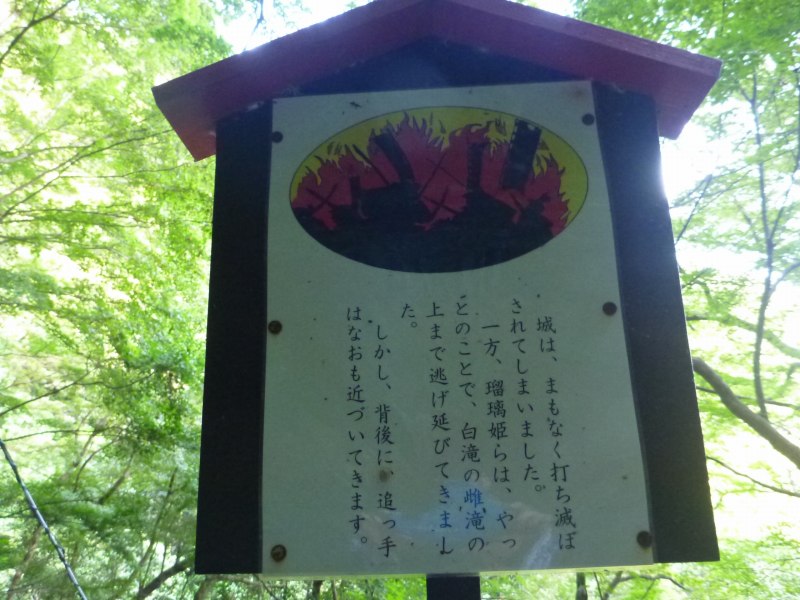 城は、まもなく打ち滅ぼ
されてしまいました。
一方、瑠璃姫らは、やっ
とのことで、白滝の雌滝の
上まで逃げ延びてきまし
た。
しかし、背後に、追っ手
はなおも近づいてきます。